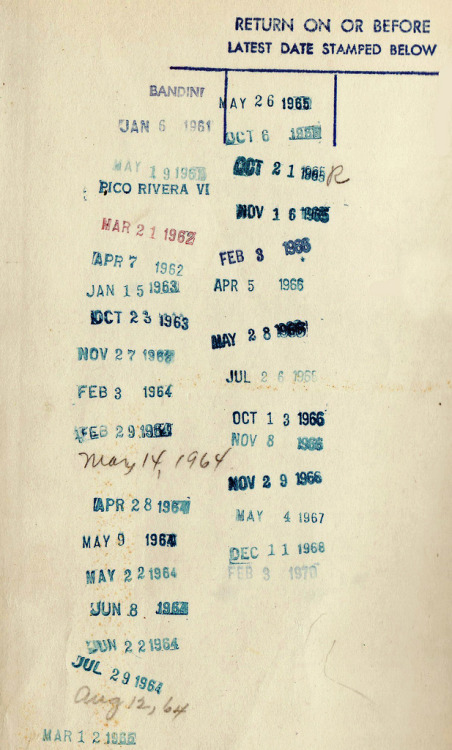 RETURN ON OR BEFORE
LATEST DATE STAMPED BELOW
BANDINI
JAN 6 1961
MAY 19 196
PICO RIVERA VI
MAR 21 1962
APR 7 1962
JAN 15 1963
OCT 23 1963
NOV 27 196
FEB 3 1964
FEB 29 1964
May 14, 1964
APR 28 1964
MAY 9 1964
MAY 22 1964
JUN 8 1964
JUN 22 1964
JUL 29 1964
Aug 12, 64
MAR 12 1965
MAY 26 1965
OCT 6
OCT 21 1965 R
NOV 16 1965
FEB 3 1966
APR 5 1966
MAY 28 1966
JUL 26 1966
OCT 13 1966
NOV 8 1966
NOV 29 1966
MAY 4 1967
DEC 11 1968
FEB 3 1970